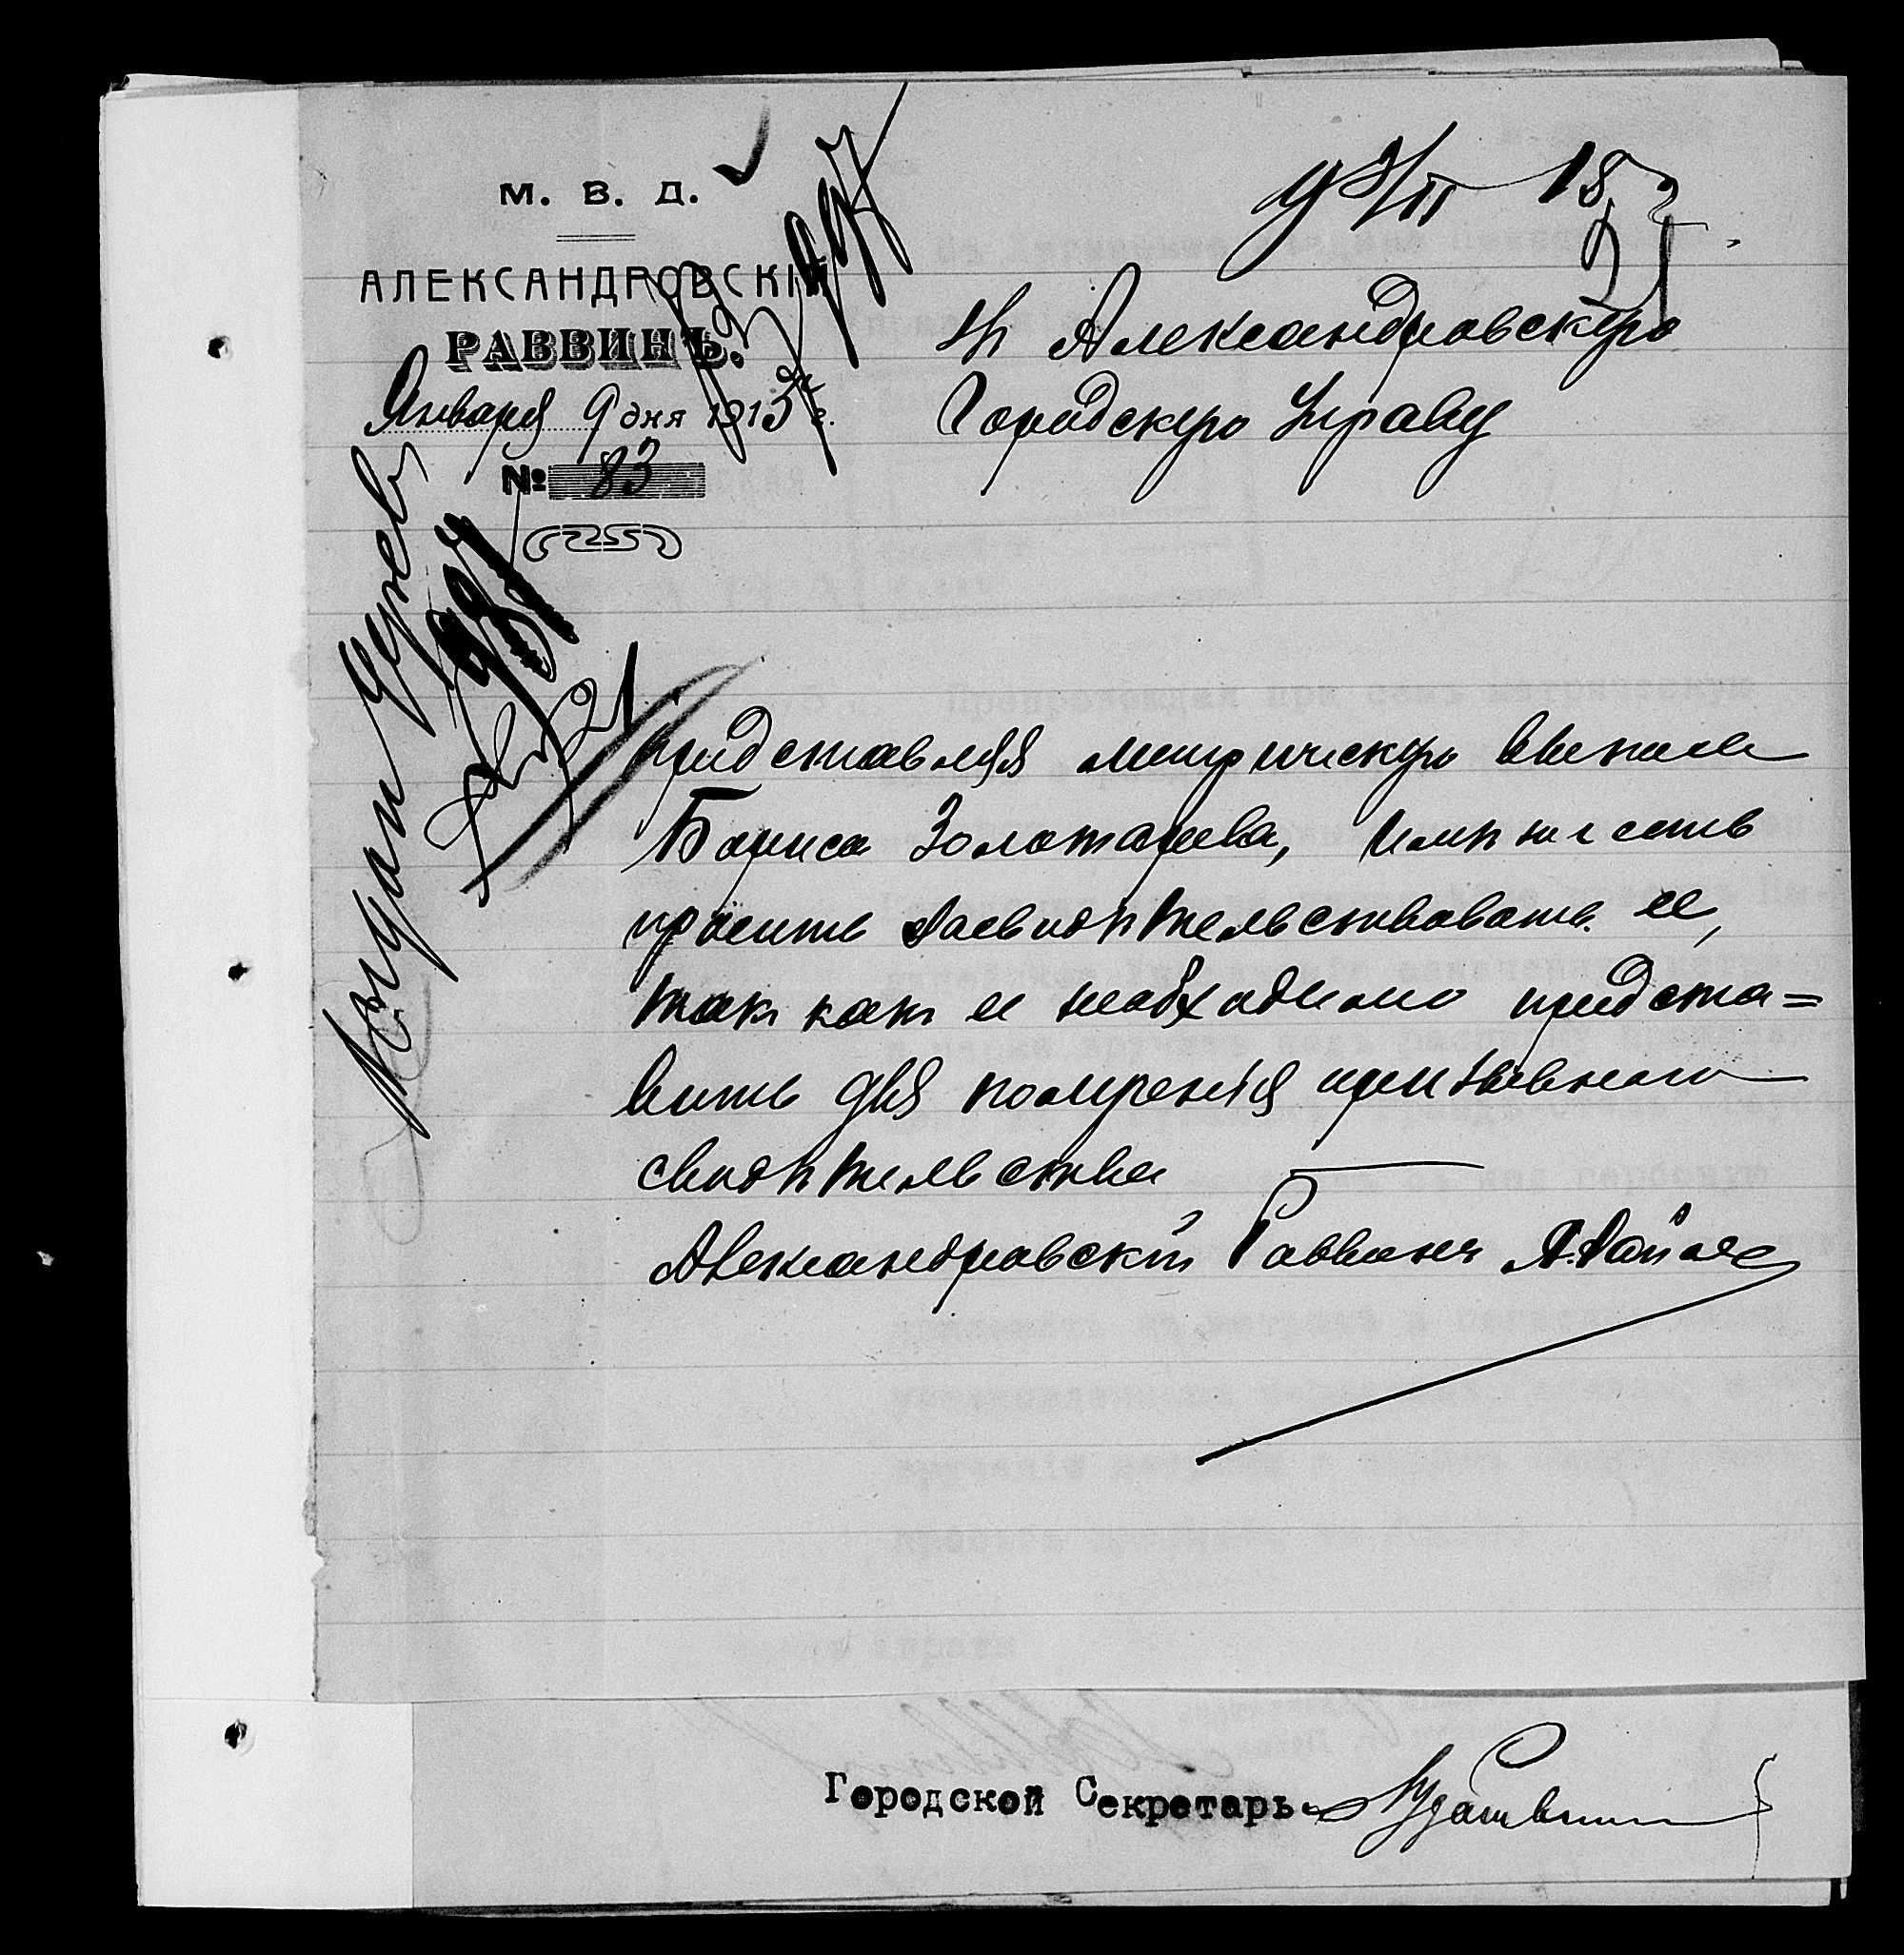 М. В. Д.
АЛЕКСАНДРОВСКІЙ
РАВВИНЪ.
Января 9 дня 1913 г.
№ 83
Въ Александровскую
Городскую Управу
Представляя метрическую выпись
Бориса Золотарева, имѣю честь
просить засвидѣтельствовать ее,
такъ какъ ее необходимо предста=
вить для полученія призывного
свидѣтельства
Александровскій Раввинъ
Городской Секретарь